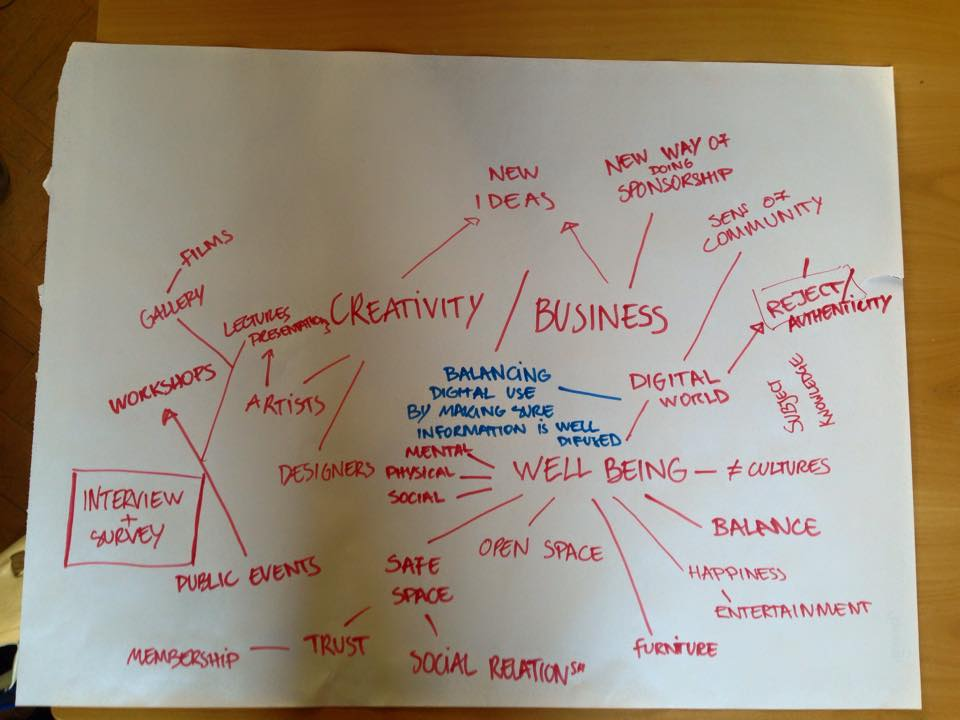 NEW
IDEAS
NEW WAY OF
DOING
SPONSORSHIP
SENS OF
COMMUNITY
FILMS
GALLERY
LECTURES
PRESENTATIONS
CREATIVITY
BUSINESS
REJECT/
AUTHENTICITY
WORKSHOPS
ARTISTS
BALANCING
DIGITAL USE
BY MAKING SURE
INFORMATION IS WELL
DIFUSED
DIGITAL
WORLD
SUBJECT
KNOWLEDGE
DESIGNERS
MENTAL
PHYSICAL
SOCIAL
WELL BEING
≠ CULTURES
INTERVIEW
+
SURVEY
PUBLIC EVENTS
SAFE
SPACE
OPEN SPACE
BALANCE
HAPPINESS
ENTERTAINMENT
MEMBERSHIP
TRUST
SOCIAL RELATION
FURNITURE